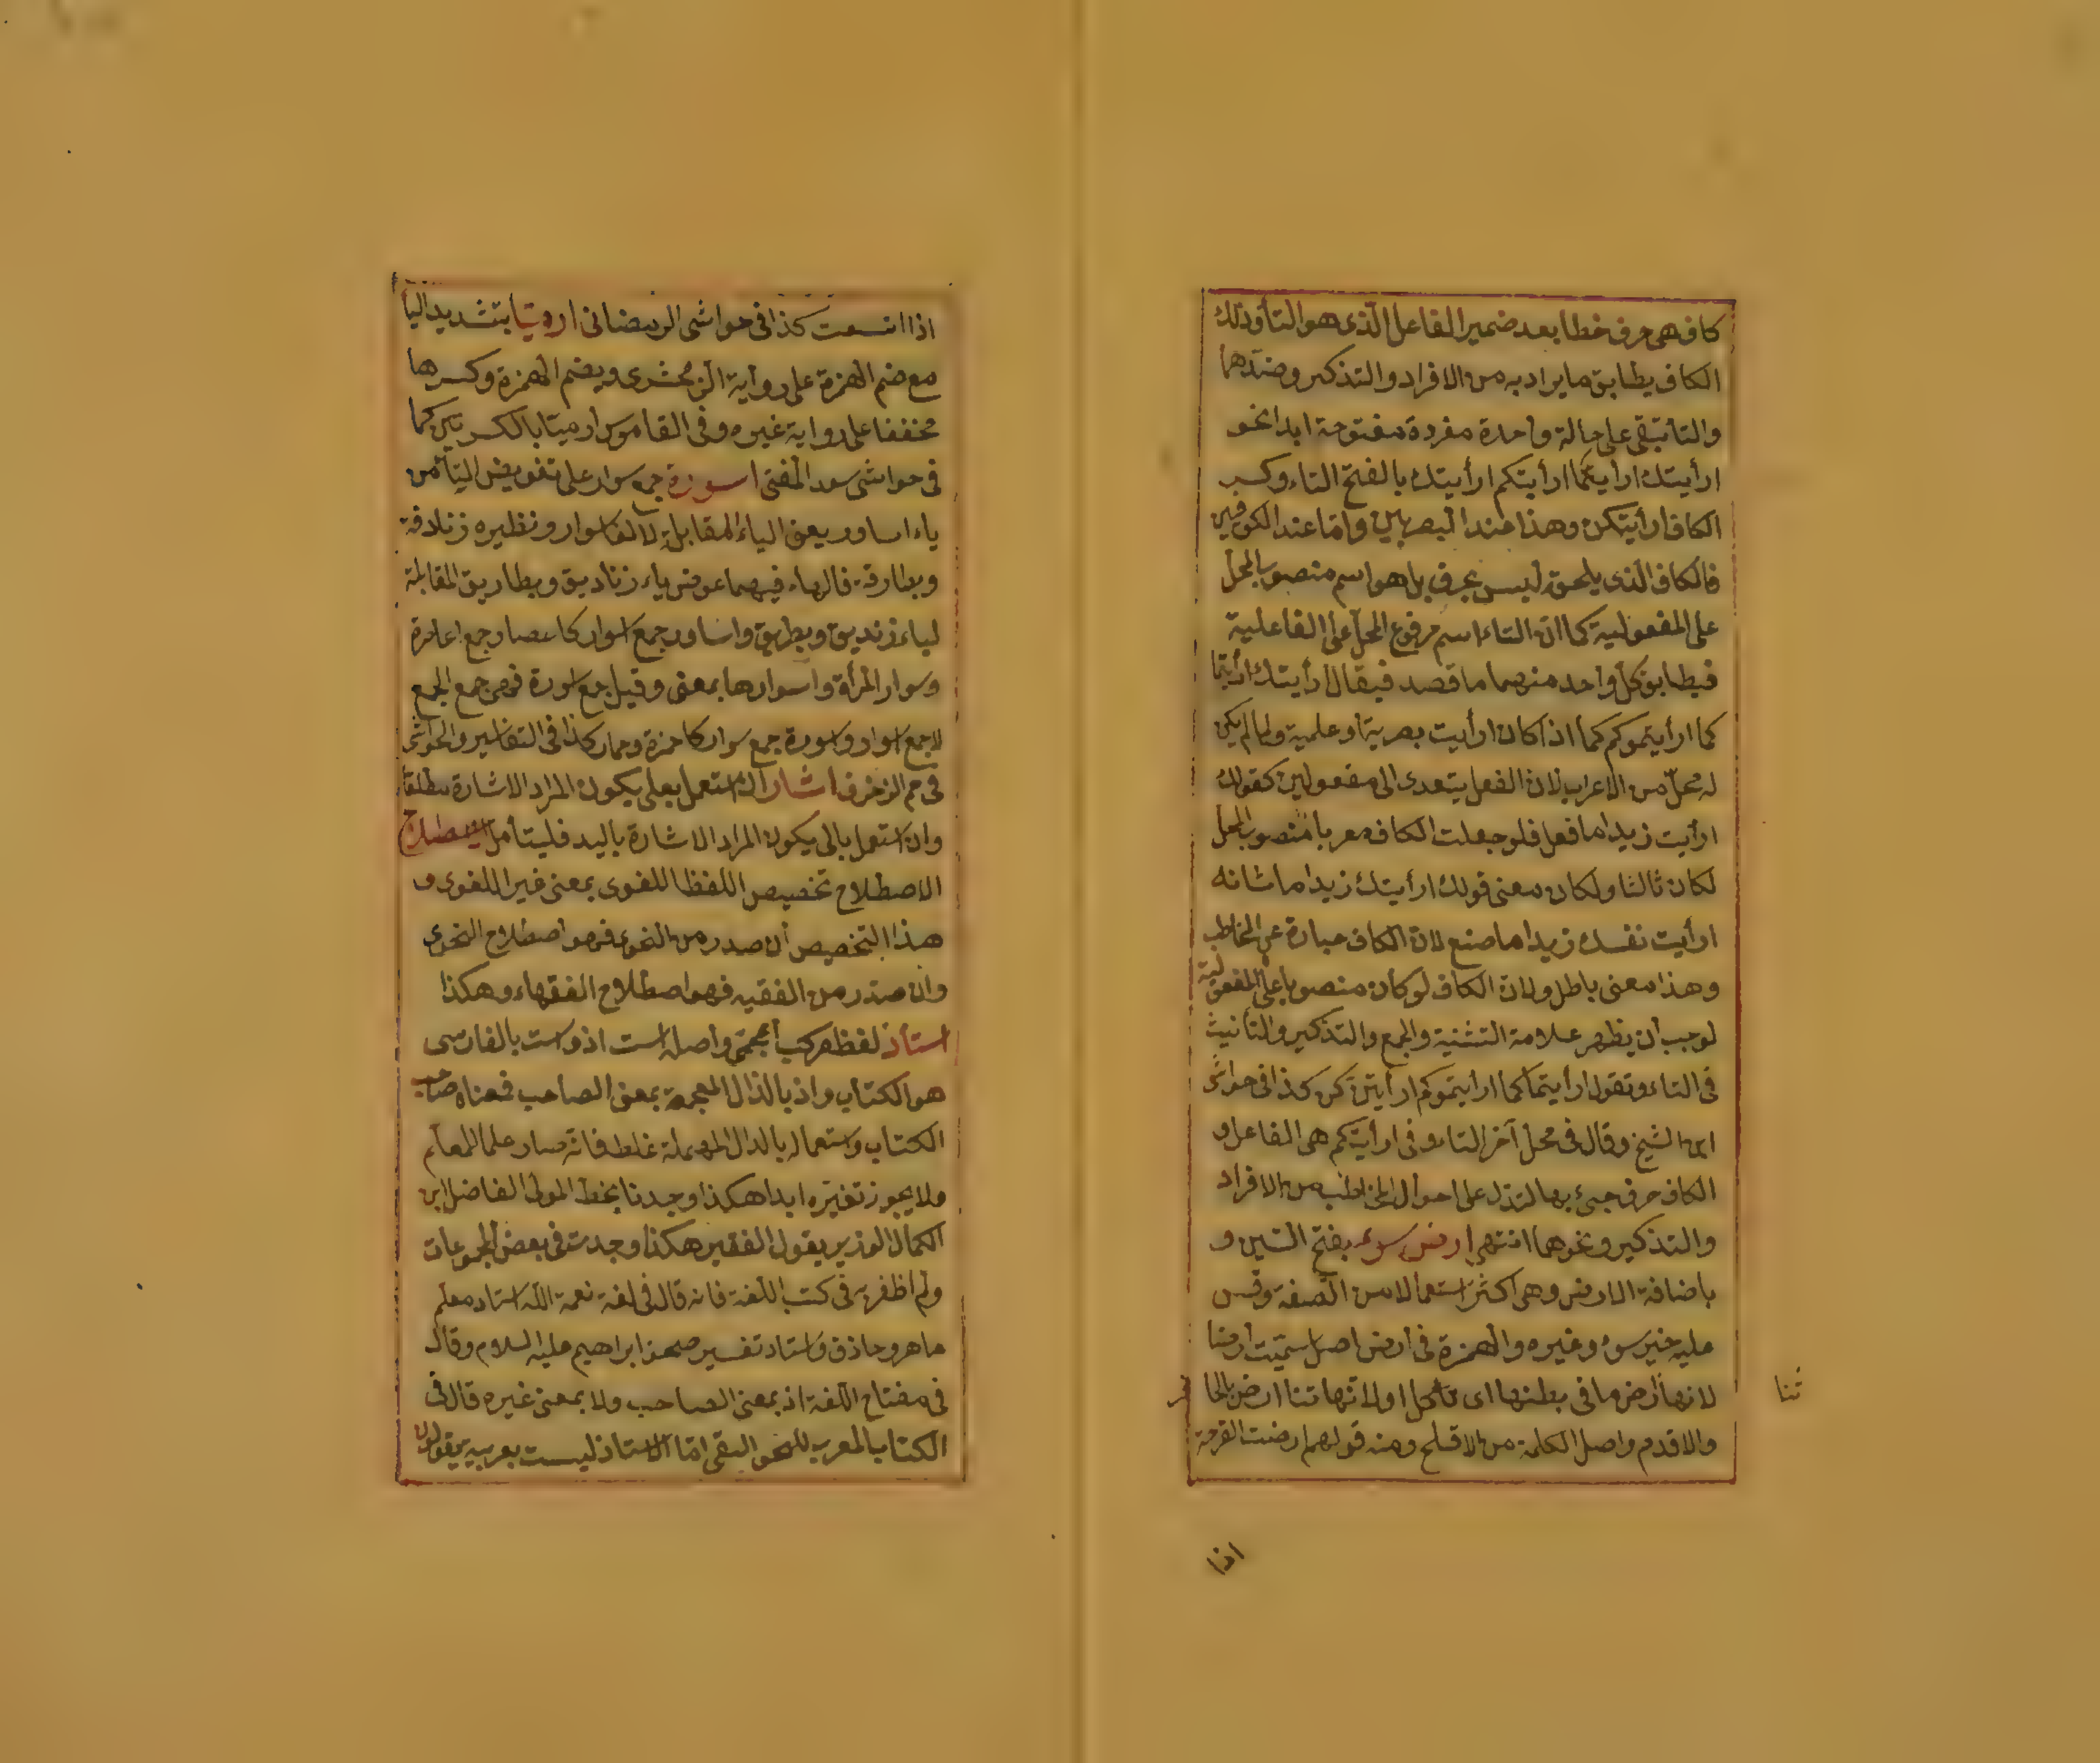 كاف هى حرف خطاب بعد ضمير الفاعل الذى هو التاء وذلك
الكاف يطابق ما يراد به من الافراد والتذكير وضدهما
والتاء تبقى على حالة واحدة مفردة مفتوحة ابدا نحو
ارأيتك ارأيتكما ارأيتكم ارأيتك بالفتح التاء وكسر
الكاف ارأيتكن وهذا عند البصريين واما عند الكوفيين
فالكاف الذى يلحق ليس بحرف بل هو اسم منصوب المحل
على المفعولية كما ان التاء اسم مرفوع المحل على الفاعلية
فيطابق كل واحد منهما ما قصد فيقال ارأيتك ارأيتما
كما ارأيتموكم كما اذا كان ارأيت بصرية او علمية ولما لم يكن
له محل من الاعراب لان الفعل يتعدى الى مفعولين كقولك
ارأيت زيدا ما فعل فلو جعلت الكاف معربا منصوب المحل
لكان ثالثا ولكان معنى قولك ارأيتك زيدا ما شانه
ارأيت نفسك زيدا ما صنع لان الكاف عبارة عن المخاطب
وهذا معنى باطل ولان الكاف لو كان منصوبا على المفعولية
لوجب أن يظهر علامة التثنية والجمع والتذكير والتأنيث
فى التاء وتقول ارأيتماكما ارايتموكم ارأيتن كن كذا فى حواشى
ابن الشيخ وقال فى محل آخر التاء فى ارأيتكم هى الفاعل و
الكاف حرف جيئ بها لتدل على احوال المخاطب من الافراد
والتذكير ونحوهما انتهى ارض سوء بفتح السين و
باضافة الارض وهى اكثر استعمالا من الصفة وقس
عليه خير سوء وغيره والهمزة فى أرض اصل سميت أرضا
لانها تأرض ما فى بطنها اى تأكل او لانها تتأرض بالحافر
تتا
والاقدم واصل الكلمة من الاقلح ومنه قولهم ارضت القرحة
اذا
اذا اتسعت كذا فى حواشى الرمضانى ارميا بتشديد الياء
مع ضم الهمزة على رواية الزمخشرى وبضم الهمزة وكسرها
مخففا على رواية غيره وفى القاموس ارميا بالكسر نبى كما
فى حواشى سعد المفتى اسورة جمع سوار على تعويض التاء من
ياء اساور يعنى الياء المقابلة لالف اسوار ونظيره زنادقة
وبطارقة فالهاء فيهما عوض ياء زناديق وبطاريق المقابلة
لياء زنديق وبطريق واساور جمع اسوار كاعصار جمع اعاصرة
وسوار المرأة واسوارها بمعنى وقيل جمع اسورة فهى جمع الجمع
لا جمع اسوار واسورة جمع سوار كاحمرة وحمار كذا فى التفاسير والحواشى
فى حم الزخرف اشار ان استعمل بعلى يكون المراد الاشارة مطلقا
وان استعمل بالى يكون المراد الاشارة باليد فليتأمل الاصطلاح
الاصطلاح تخصيص اللفظ اللغوى بمعنى غير اللغوى و
هذا التخصيص أن صدر من النحوى فهو اصطلاح النحوى
وان صدر من الفقيه فهو اصطلاح الفقهاء وهكذا
استاذ لفظ مركب أعجمى واصله است اذ واست بالفارسى
هو الكتاب واذ بالذال المعجمة بمعنى الصاحب فمعناه صاحب
الكتاب واستعماله بالدال المهملة غلط فانه صار علما للمعلم
ولا يجوز تغيره ابدا هكذا وجدنا بخط المولى الفاضل ابن
الكمال الوزير يقول الفقير هكذا وجدت فى بعض المجموعات
ولم اظفر به فى كتب اللغة فانه قال فى لغة نعمة الله استاد معلم
ماهر وحاذق واستاد تفسير صحف ابراهيم عليه السلام وقال
فى مفتاح اللغة اذ بمعنى الصاحب ولا بمعنى غيره قال فى
الكتاب المعرب للنحو البقى اما الاستاذ ليست بعربية يقولون